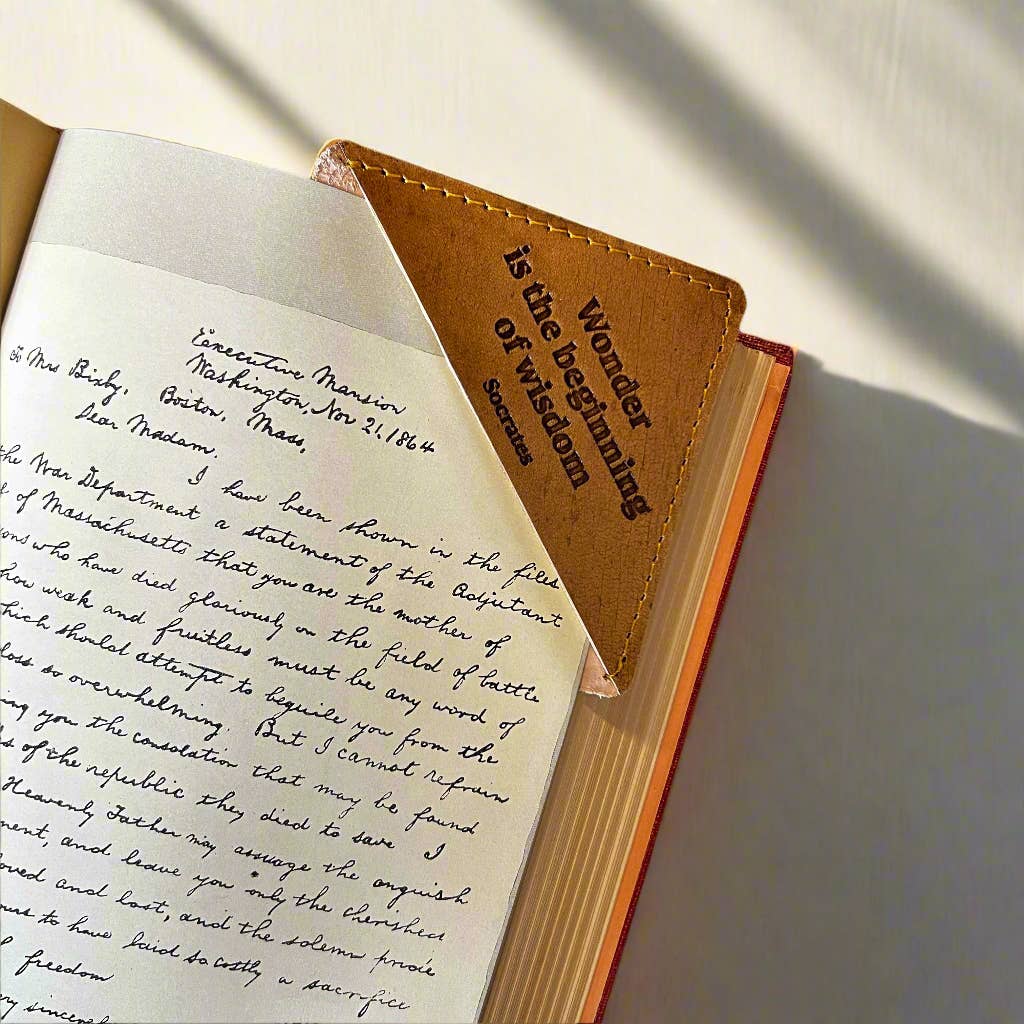 Executive Mansion
Washington, Nov 21, 1864
To Mrs Bixby, Boston, Mass,
Dear Madam.
I have been shown in the files
the War Department a statement of the Adjutant
of Massachusetts that you are the mother of
who have died gloriously on the field of battle
how weak and fruitless must be any word of
which should attempt to beguile you from the
loss so overwhelming. But I cannot refrain
you the consolation that may be found
of the republic they died to save I
Heavenly Father may assuage the anguish
and leave you only the cherished
and lost, and the solemn pride
to have laid so costly a sacrifice
freedom
Wonder
is the beginning
of wisdom
Socrates